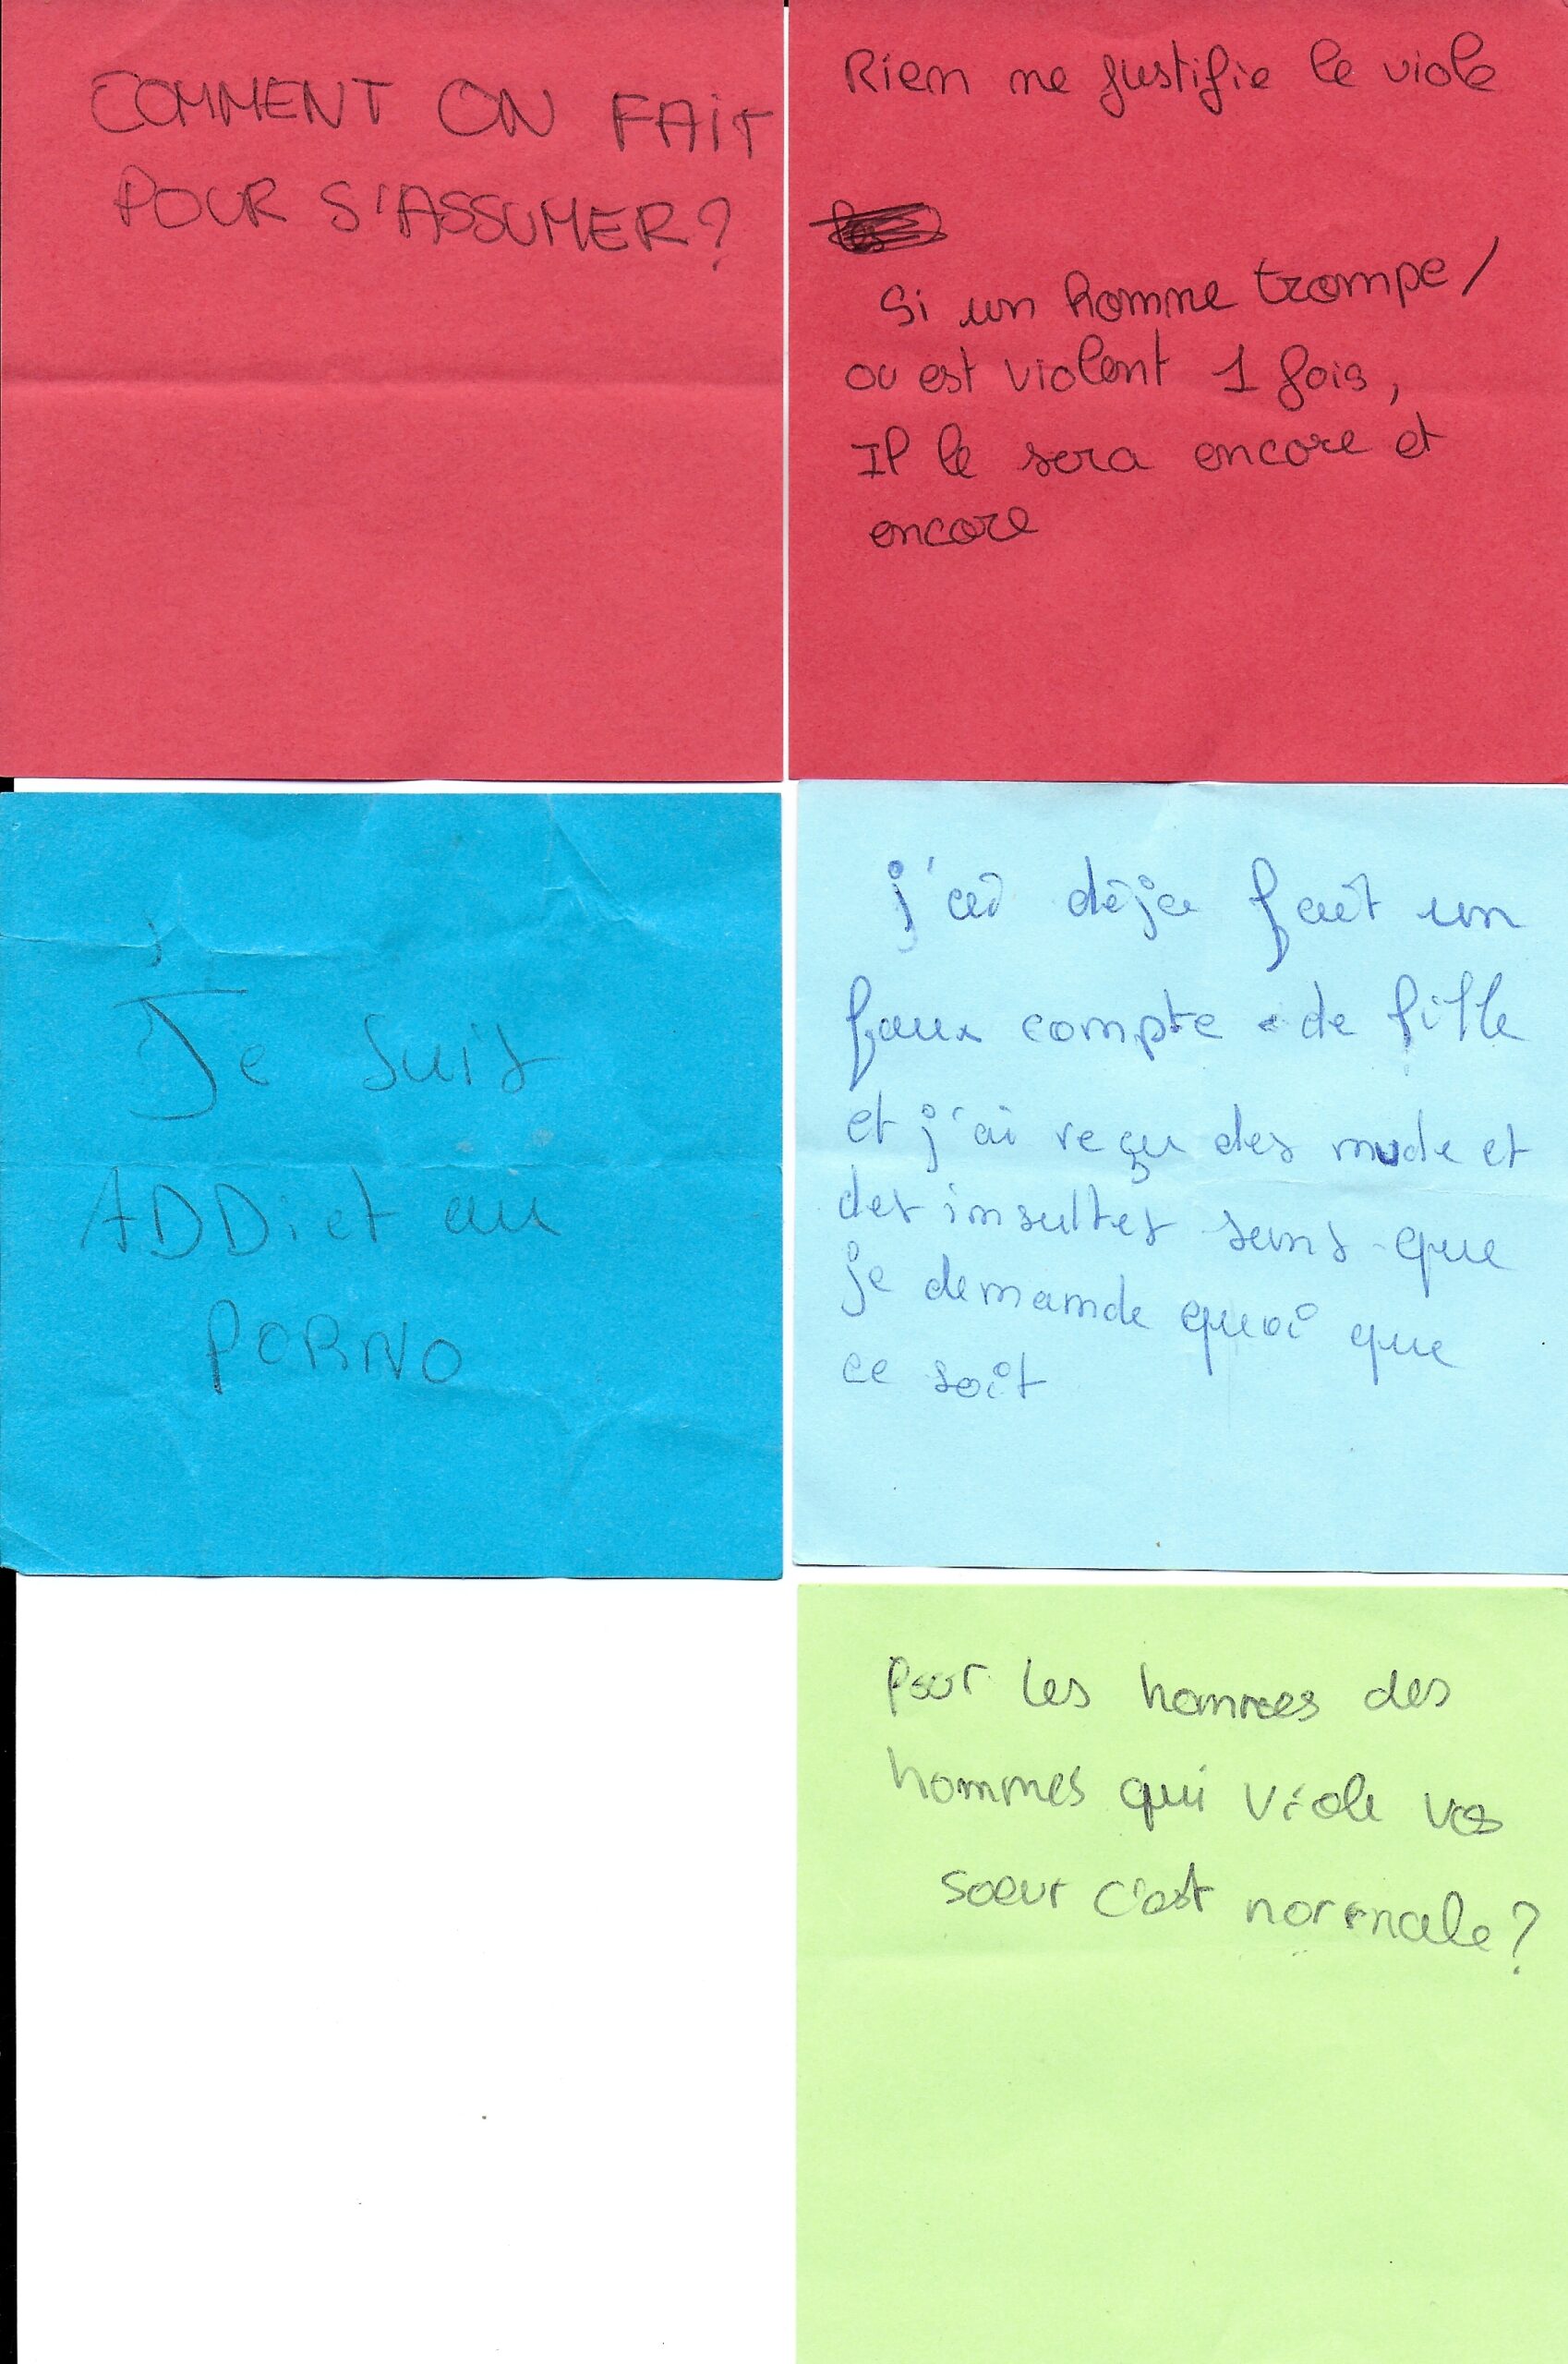 COMMENT ON FAIT
POUR S'ASSUMER?
Rien ne justifie le viole
Si un homme trompe/
ou est violent 1 fois,
Il le sera encore et
encore
Je suis
ADDict au
PORNO
j'ai déja fait un
faux compte de fille
et j'ai reçu des nude et
des insultes sans que
je demande quoi que
ce soit
Pour les hommes des
hommes qui viole vos
soeur c'est normale?